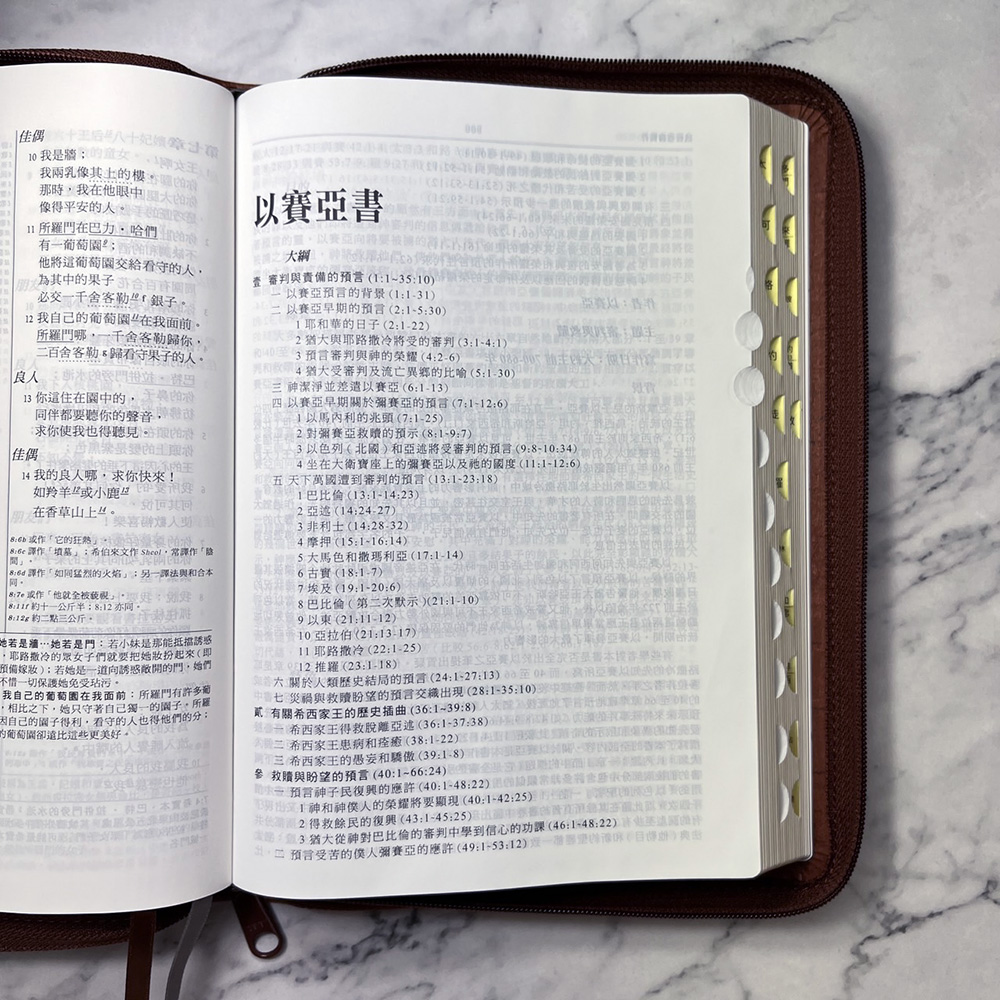 佳偶
10 我是牆；
我兩乳像其上的樓。
那時，我在他眼中
像得平安的人。
11 所羅門在巴力·哈們
有一葡萄園；
他將這葡萄園交給看守的人，
為其中的果子
必交一千舍客勒 銀子。
12 我自己的葡萄園 在我面前。
所羅門哪，一千舍客勒歸你，
二百舍客勒 歸看守果子的人。
良人
13 你這住在園中的，
同伴都要聽你的聲音，
求你使我也得聽見。
佳偶
14 我的良人哪，求你快來！
如羚羊 或小鹿
在香草山上。
8:6b 或作「它的狂熱」。
8:6c 譯作「墳墓」；希伯來文作 Sheol，常譯作「陰
間」。
8:6d 譯作「如同猛烈的火焰」；另一譯法與和合本
同。
8:7e 或作「他就全被藐視」。
8:11f 約十一公斤半；8:12 亦同。
8:12g 約二點三公斤。
她若是牆…她若是門：若小妹是那能抵擋誘惑
，耶路撒冷的眾女子們就要把她妝扮起來（即
預備嫁妝）；若她是一道向誘惑敞開的門，她們
不惜一切保護她免受玷污。
我自己的葡萄園在我面前：所羅門有許多葡
，相比之下，她只守著自己獨一的園子。所羅
因自己的園子得利，看守的人也得他們的分；
的葡萄園卻遠比這些更美好。
以賽亞書
大綱
壹 審判與責備的預言(1:1~35:10)
一 以賽亞預言的背景(1:1-31)
二 以賽亞早期的預言(2:1-5:30)
1 耶和華的日子(2:1-22)
2 猶大與耶路撒冷將受的審判(3:1-4:1)
3 預言審判與神的榮耀(4:2-6)
4 猶大受審判及流亡異鄉的比喻(5:1-30)
三 神潔淨並差遣以賽亞(6:1-13)
四 以賽亞早期關於彌賽亞的預言(7:1-12:6)
1 以馬內利的兆頭(7:1-25)
2 對彌賽亞救贖的預示(8:1-9:7)
3 以色列(北國)和亞述將受審判的預言(9:8-10:34)
4 坐在大衛寶座上的彌賽亞以及祂的國度(11:1-12:6)
五 天下萬國遭到審判的預言(13:1-23:18)
1 巴比倫(13:1-14:23)
2 亞述(14:24-27)
3 非利士(14:28-32)
4 摩押(15:1-16:14)
5 大馬色和撒瑪利亞(17:1-14)
6 古實(18:1-7)
7 埃及(19:1-20:6)
8 巴比倫(第二次默示)(21:1-10)
9 以東(21:11-12)
10 亞拉伯(21:13-17)
11 耶路撒冷(22:1-25)
12 推羅(23:1-18)
六 關於人類歷史結局的預言(24:1-27:13)
七 災禍與救贖盼望的預言交織出現(28:1-35:10)
貳 有關希西家王的歷史插曲(36:1~39:8)
一 希西家王得救脫離亞述(36:1-37:38)
二 希西家王患病和痊癒(38:1-22)
三 希西家王的愚妄和驕傲(39:1-8)
參 救贖與盼望的預言(40:1~66:24)
一 預言神子民復興的應許(40:1-48:22)
1 神和神僕人的榮耀將要顯現(40:1-42:25)
2 得救餘民的復興(43:1-45:25)
3 猶大從神對巴比倫的審判中學到信心的功課(46:1-48:22)
二 預言受苦的僕人彌賽亞的應許(49:1-53:12)